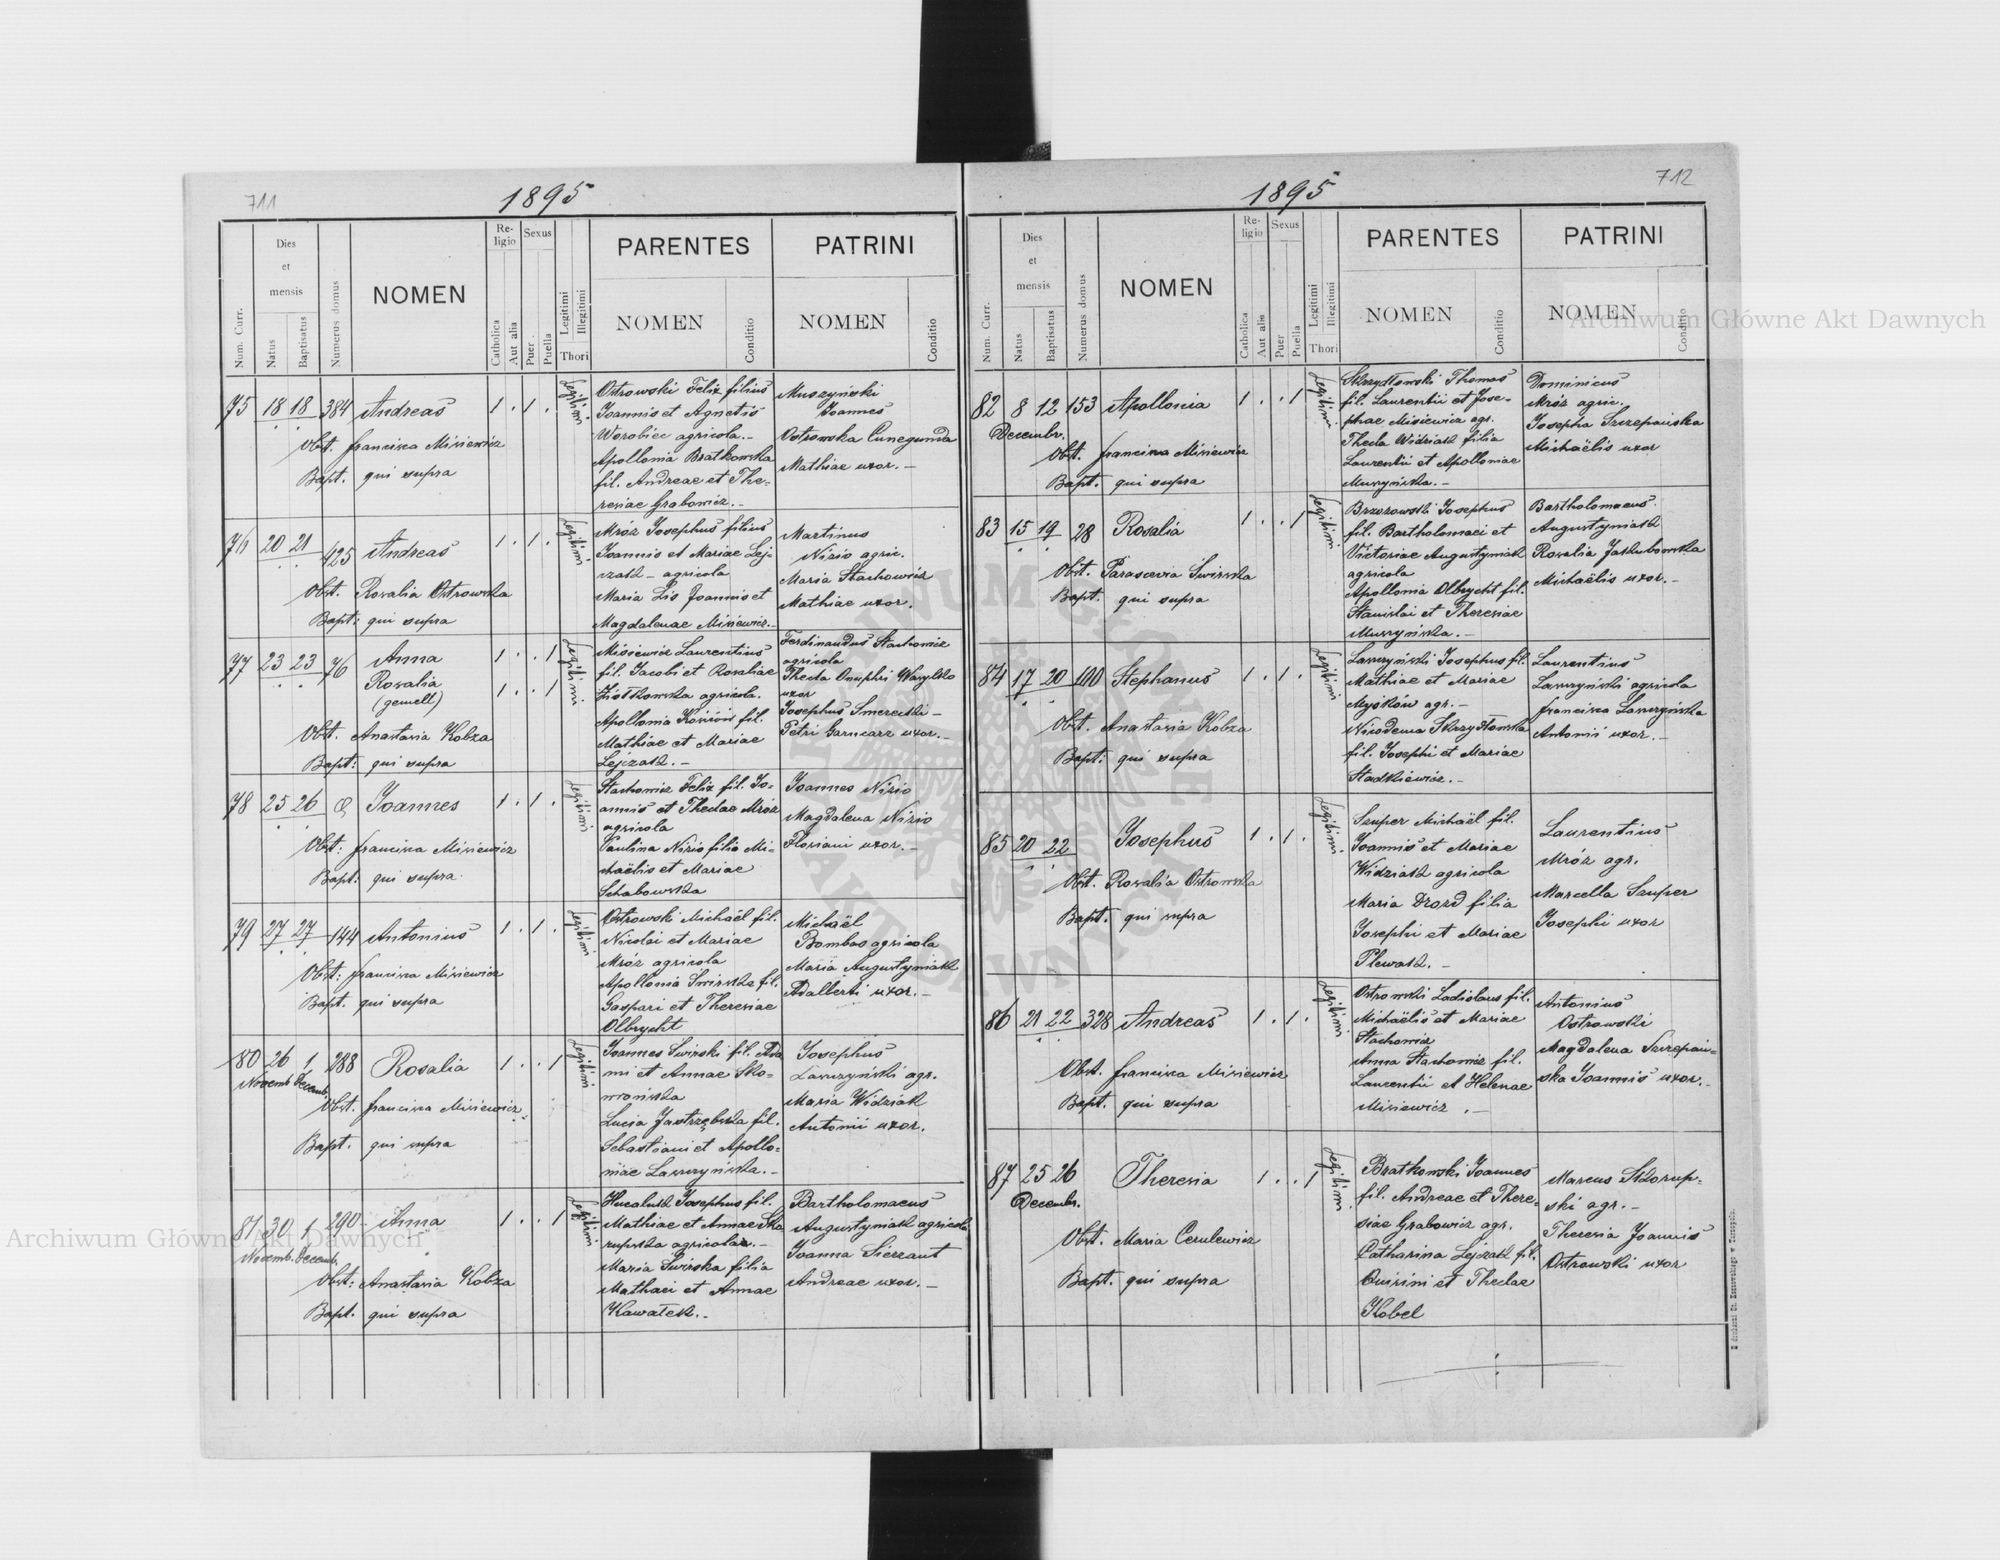 711
1895
Num. Curr.
Dies et mensis
Natus
Baptisatus
Numerus domus
NOMEN
Religio
Catholica
Aut alia
Sexus
Puer
Puella
Legitimi
Illegitimi
Thori
PARENTES
NOMEN
Conditio
PATRINI
NOMEN
Conditio
75 18 18 384 Andreas 1 . 1 . Legitimi
Obst. Francisca Misiewicz
Bapt. qui supra
Ostrowski Felix filius
Joannis et Agnetis
Worobiec agricola.-
Apollonia Bratkowska
fil. Andreae et The-
resiae Grabowicz.-
Muszyński
Joannes
Ostrowska Cunegunda
Mathiae uxor.-
76 20 21 425 Andreas 1 . 1 . Legitimi
Obst. Rosalia Ostrowska
Bapt: qui supra
Mróz Josephus filius
Joannis et Mariae Lej-
czak - agricola
Maria Lis Joannis et
Magdalenae Misiewicz.-
Martinus
Nizio agric.
Maria Stachowicz
Mathiae uxor.
77 23 23 76 Anna 1 . . 1 Legitimi
Rosalia 1 . . 1
(gemell)
Obst. Anastasia Kobza
Bapt: qui supra
Misiewicz Laurentius
fil. Jacobi et Rosaliae
Ziółkowska agricola.
Apollonia fil.
Mathiae et Mariae
Lejczak.-
Ferdinandus Stachowicz
agricola
Thecla Onuphri
uxor
Josephus Smerecki -
Petri Garncarz uxor.-
78 25 26 Joannes 1 . 1 . Legitimi
Obst: Francisca Misiewicz
Bapt: qui supra.
Stachowicz Felix fil. Jo-
annis et Theclae Mróz
agricola
Paulina Nizio filia Mi-
chaëlis et Mariae
Schabowska
Joannes Nizio
Magdalena Nizio
Floriani uxor.-
79 27 27 144 Antonius 1 . 1 . Legitimi
Obst: Francisca Misiewicz
Bapt. qui supra
Ostrowski Michaël fil.
Nicolai et Mariae
Mróz agricola
Apollonia Świrska fil.
Gaspari et Theresiae
Olbrycht
Michaël
Bombas agricola
Maria Augustyniak
Adalberti uxor.-
80 26 1 288 Rosalia 1 . . 1 Legitimi
Novemb. Decemb.
Obst. Francisca Misiewicz
Bapt. qui supra
Joannes Świrski fil. Ada
mi et Annae Sko-
wrońska
Lucia Jastrzębska fil.
Sebastiani et Apollo-
niae Lawrzyńska.-
Josephus
Lawrzyński agr.
Maria Widziak
Antonii uxor.
81 30 1 290 Anna 1 . . 1 Legitimi
Novemb. Decemb.
Obst: Anastasia Kobza
Bapt. qui supra
Hucaluk Josephus fil.
Mathiae et Annae Sko
rupska agricolae.-
Maria Świrska filia
Mathaei et Annae
Kawałek.-
Bartholomaeus
Augustyniak agricola
Joanna Sierzant
Andreae uxor.-
712
1895
Num. Curr.
Dies et mensis
Natus
Baptisatus
Numerus domus
NOMEN
Religio
Catholica
Aut alia
Sexus
Puer
Puella
Legitimi
Illegitimi
Thori
PARENTES
NOMEN
Conditio
PATRINI
NOMEN
Conditio
82 8 12 153 Apollonia 1 . . 1 Legitimi
Decembr.
Obst. Francisca Misiewicz
Bapt. qui supra
Skrzydłowski Thomas
fil. Laurentii et Jose-
phae Misiewicz agr.
Thecla Widziak filia
Laurentii et Apolloniae
Muszyńska.-
Dominicus
Mróz agric.
Josepha Szczepańska
Michaëlis uxor
83 15 19 28 Rosalia 1 . . 1 Legitimi
Obst. Parascevia Świrska
Bapt. qui supra
Brzozowski Josephus
fil. Bartholomaei et
Victoriae Augustyniak
agricola
Apollonia Olbrycht fil.
Stanislai et Theresiae
Muszyńska.-
Bartholomaeus
Augustyniak
Rosalia Jakubowska
Michaëlis uxor.-
84 17 20 100 Stephanus 1 . 1 . Legitimi
Obst. Anastasia Kobza
Bapt: qui supra
Lawrzyński Josephus fil.
Mathiae et Mariae
Myśków agr.-
Nicodema Skrzydłowska
fil. Josephi et Mariae
Stadkiewicz.-
Laurentius
Lawrzyński agricola
Francisca Lawrzyńska
Antonii uxor.-
85 20 22 Josephus 1 . 1 . Legitimi
Obst. Rosalia Ostrowska
Bapt. qui supra
Szuper Michaël fil.
Joannis et Mariae
Widziak agricola
Maria Drozd filia
Josephi et Mariae
Plewak.-
Laurentius
Mróz agr.
Marcella Szuper
Josephi uxor
86 21 22 328 Andreas 1 . 1 . Legitimi
Obst. Francisca Misiewicz
Bapt. qui supra
Ostrowski Ladislaus fil.
Michaëlis et Mariae
Stachowicz
Anna Stachowicz fil.
Laurentii et Helenae
Misiewicz.-
Antonius
Ostrowski
Magdalena Szczepań-
ska Joannis uxor.-
87 25 26 Theresia 1 . . 1 Legitimi
Decembr.
Obst. Maria Cerulewicz
Bapt. qui supra
Bratkowski Joannes
fil. Andreae et There-
siae Grabowicz agr.
Catharina Lejczak fil.
Quirini et Theclae
Kobel
Marcus Skorup-
ski agr.-
Theresia Joannis
Ostrowski uxor
Archiwum Główne Akt Dawnych
Archiwum Główne Akt Dawnych
ARCHIWUM GŁÓWNE AKT DAWNYCH